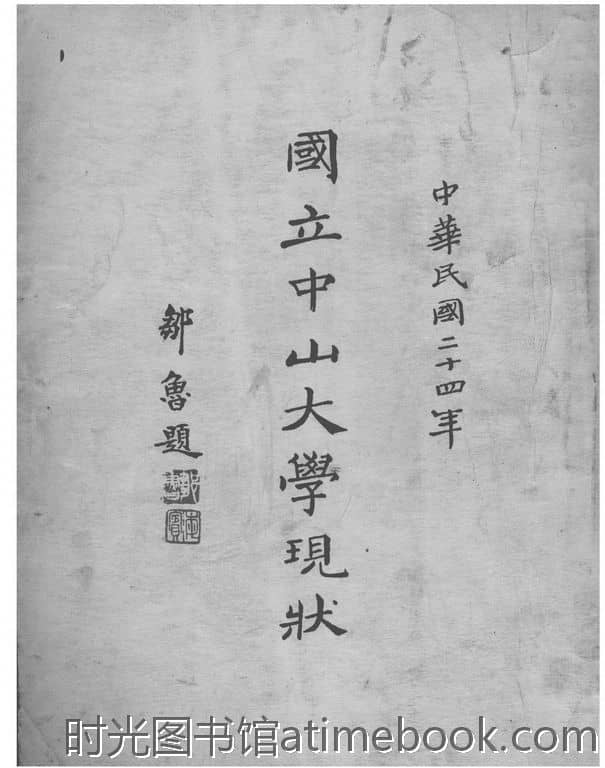 中華民國二十四年
國立中山大學現狀
鄒魯題
时光图书馆atimebook.com